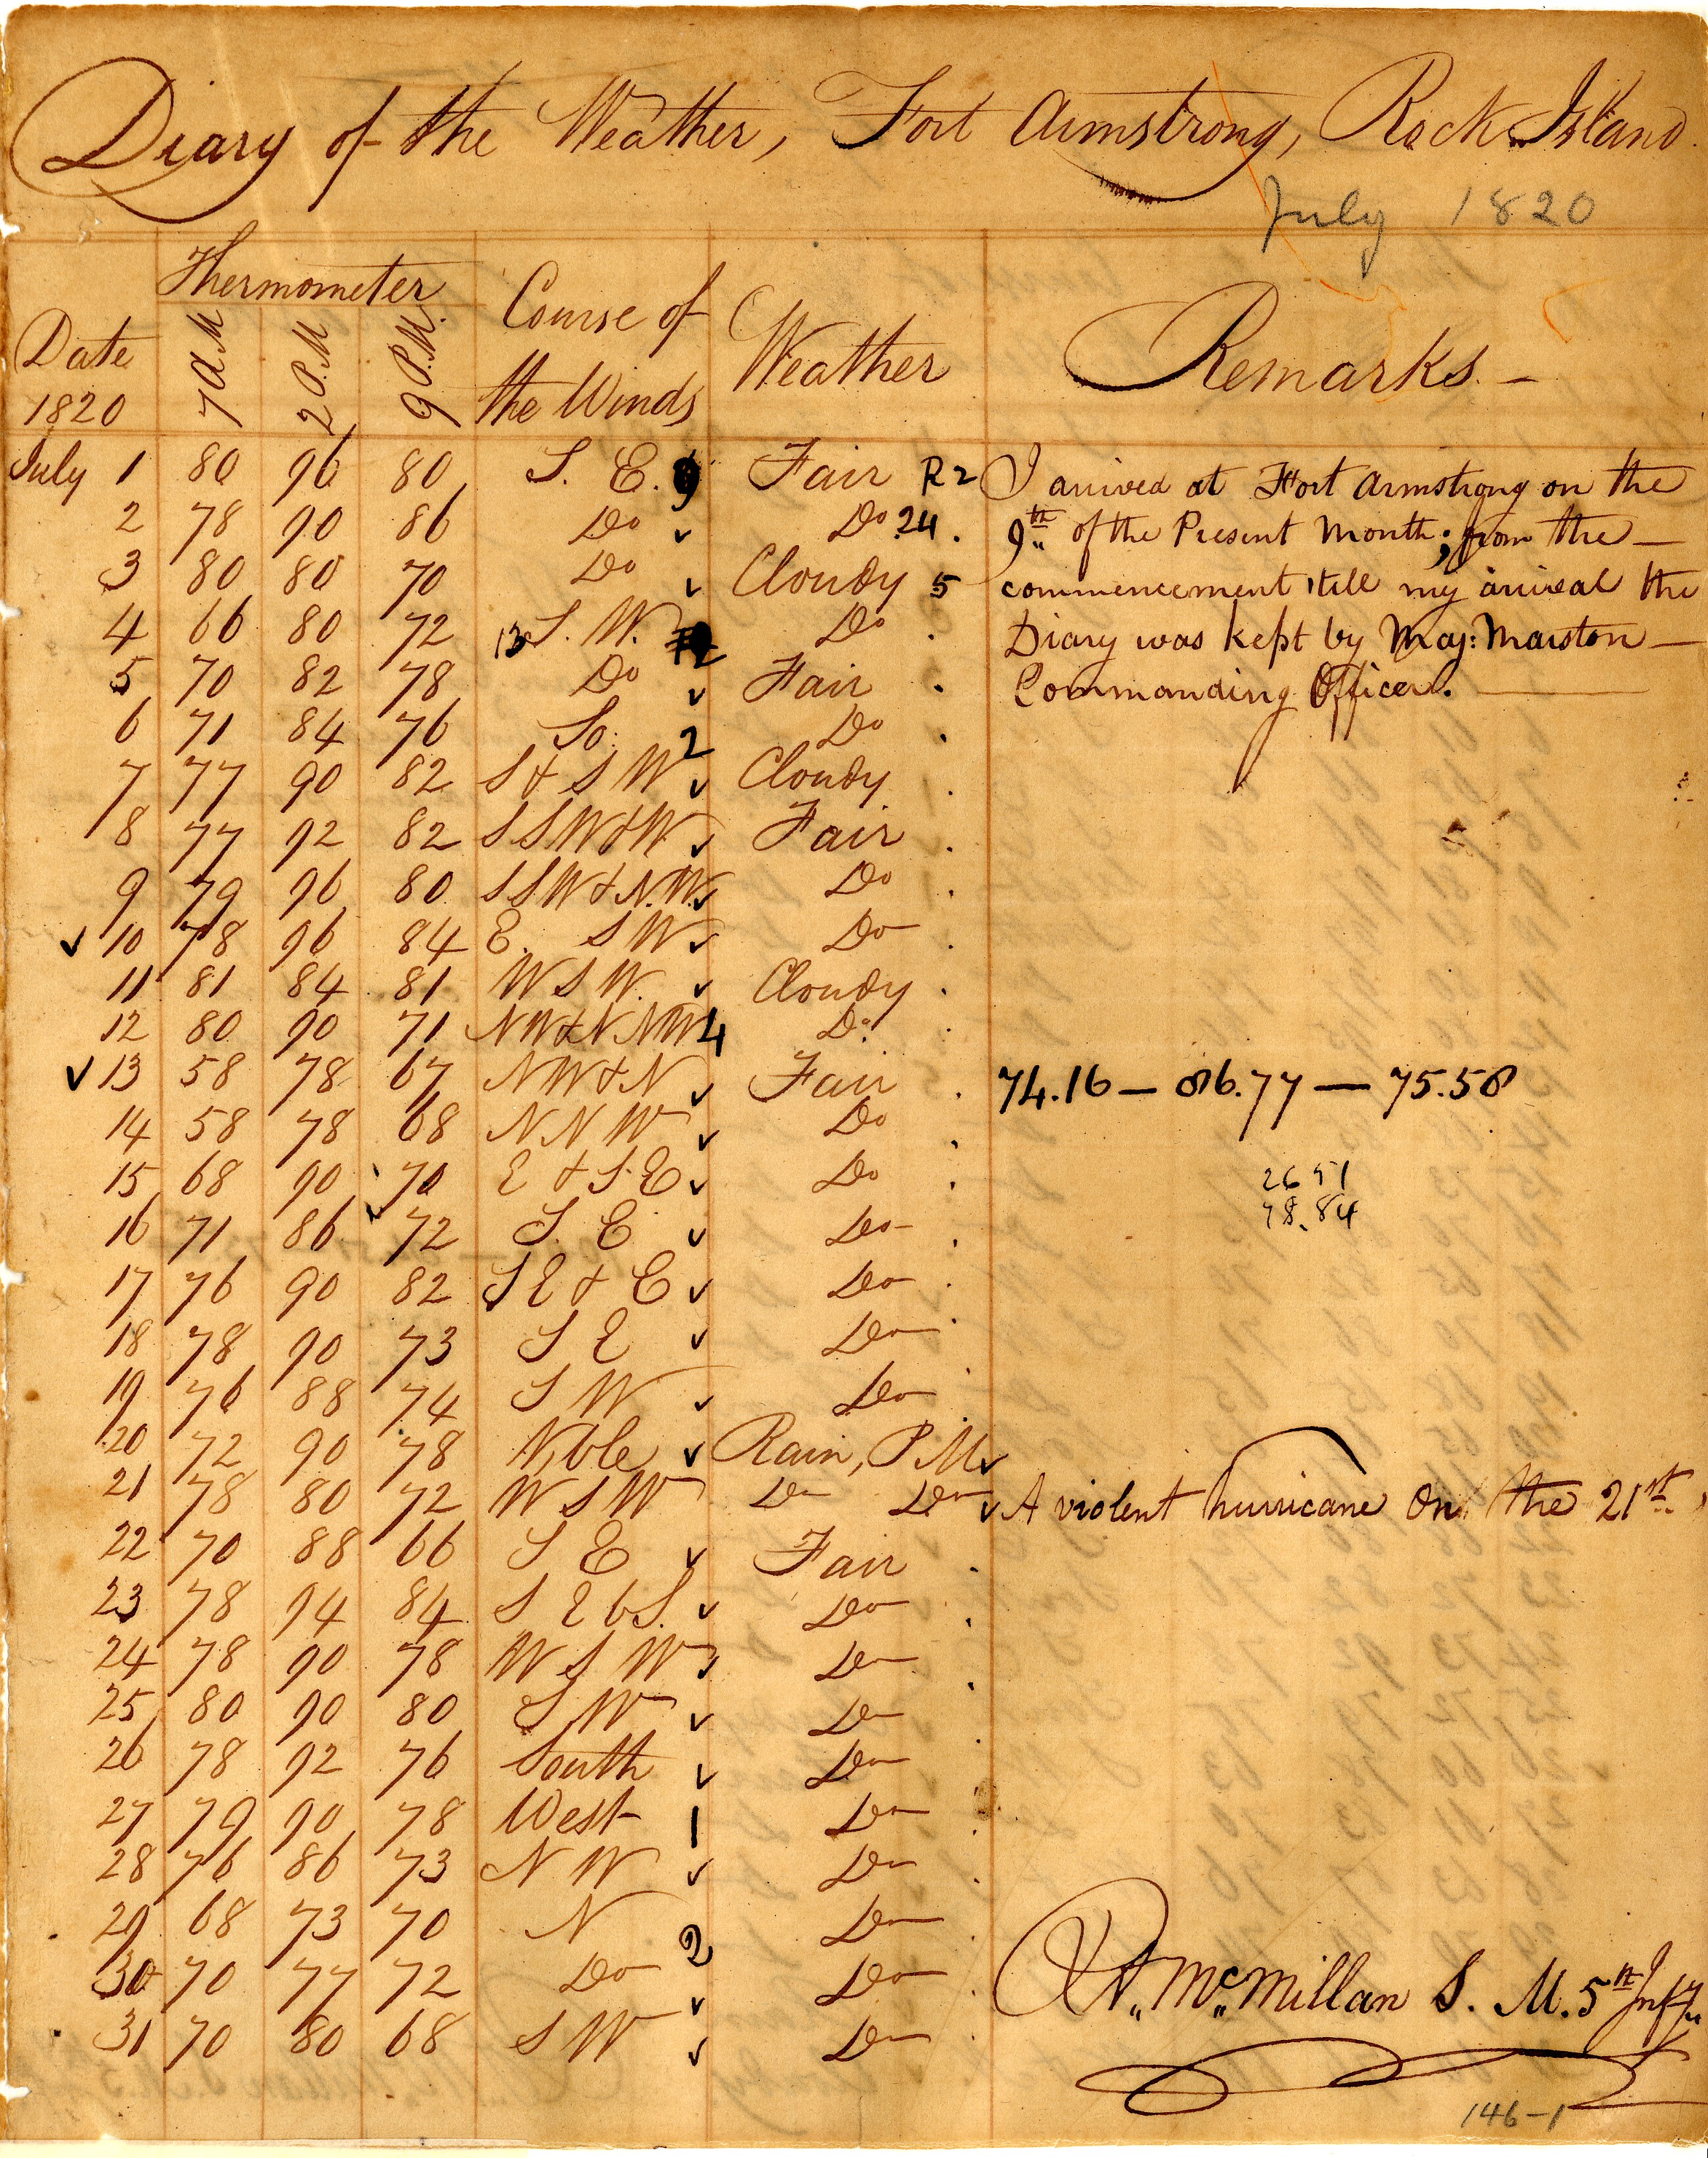 Diary of the Weather, Fort Armstrong, Rock Island.
July 1820
Date 1820 Thermometer 7 A.M 2 P.M 9 P.M. Course of the Winds Weather Remarks.—
July 1 80 96 80 S. E. 9 Fair R 2 I arrived at Fort Armstrong on the
2 78 90 86 Do Do 24. 9th of the Present Month; from the —
3 80 80 70 Do Cloudy 5 commencement till my arival the
4 66 80 72 13 S. W. 12 Do Diary was kept by Maj: Marston —
5 70 82 78 Do Fair Commanding Officer.
6 71 84 76 So. 2 Do
7 77 90 82 S & S W Cloudy
8 77 92 82 S S W & W Fair
9 79 96 80 S S W & N.W. Do
10 78 96 84 E. S W Do
11 81 84 81 W S W. Cloudy
12 80 90 71 N W & N N W 4 Do
13 58 78 67 N W & N Fair 74.16 — 86.77 — 75.58
14 58 78 68 N N W Do
15 68 90 70 E & S. E Do 26 51
78.84
16 71 86 72 S. E Do
17 76 90 82 S E & E Do
18 78 90 73 S E Do
19 76 88 74 S W Do
20 72 90 78 V,ble Rain, P. M
21 78 80 72 W S W Do Do A violent hurricane On the 21st.
22 70 88 66 S E Fair
23 78 94 84 S E b S. Do
24 78 90 78 W S W Do
25 80 90 80 S W Do
26 78 92 76 South Do
27 79 90 78 West 1 Do
28 76 86 73 N W Do
29 68 73 70 N 2 Do
30 70 77 72 Do Do McMillan S. M. 5th Infy.
31 70 80 68 S W Do
146-1